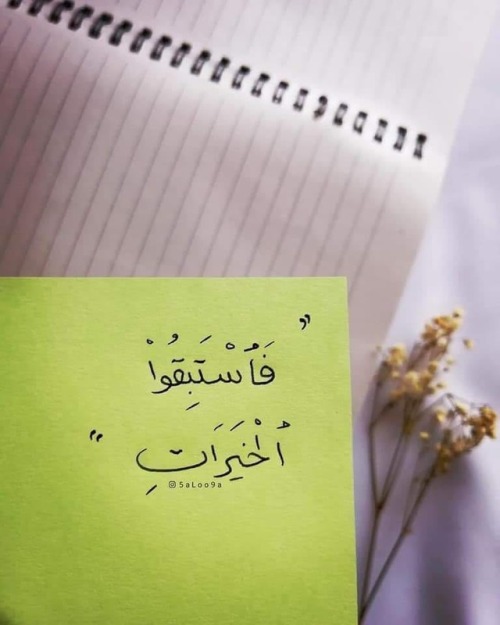 ”
فَٱسْتَبِقُوا۟
ٱلْخَيْرَاتِ “
5aLoo9a